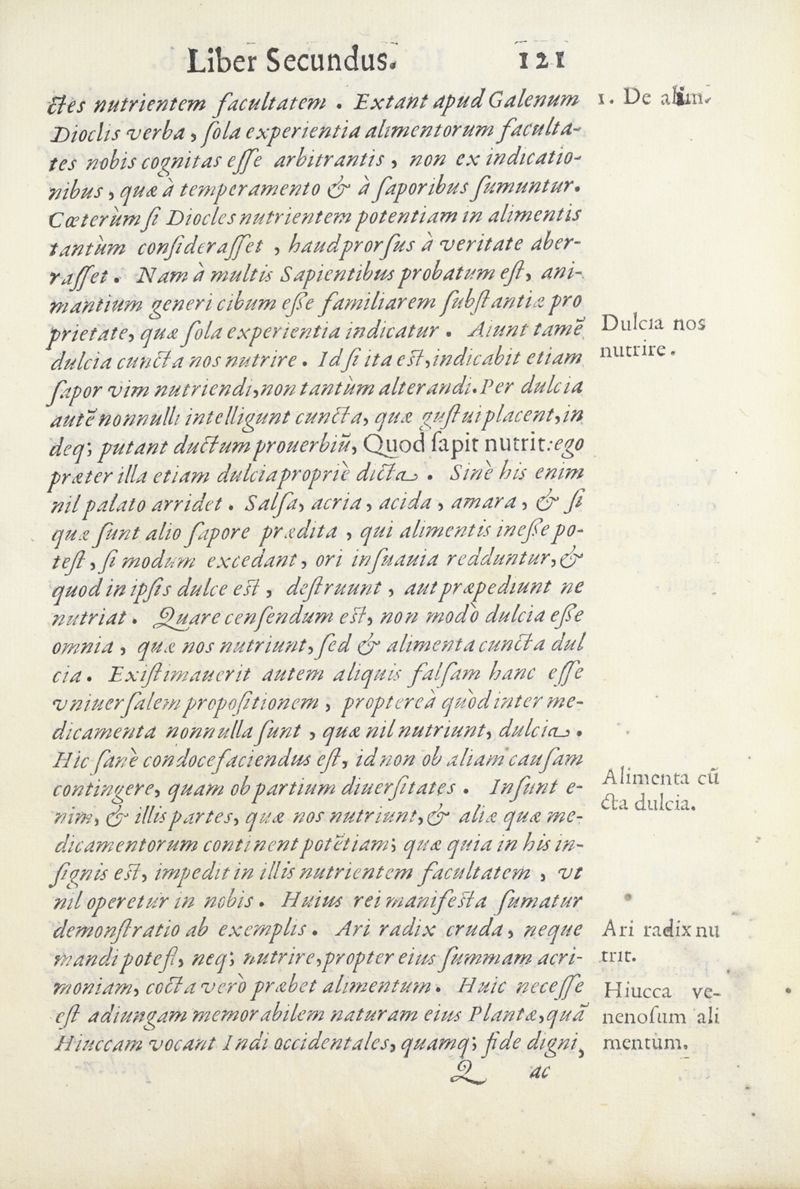 Liber Secundus. 121
ctes nutrientem facultatem . Extant apud Galenum
Dioclis verba , ſola experientia alimentorum faculta-
tes nobis cognitas eſſe arbitrantis , non ex indicatio-
nibus , quæ à temperamento & à ſaporibus ſumuntur.
Cæterùm ſi Diocles nutrientem potentiam in alimentis
tantùm conſideraſſet , haud prorſus à veritate aber-
raſſet . Nam à multis Sapientibus probatum eſt, ani-
mantium generi cibum eſſe familiarem ſubſtantiæ pro
prietate, quæ ſola experientia indicatur . Aiunt tamẽ
dulcia cuncta nos nutrire . Id ſi ita eſt, indicabit etiam
ſapor vim nutriendi, non tantùm alterandi. Per dulcia
autẽ nonnulli intelligunt cuncta, quæ guſtui placent, in
deq; putant ductum prouerbiũ, Quod ſapit nutrit: ego
præter illa etiam dulcia propriè dicta . Sine his enim
nil palato arridet . Salſa, acria , acida , amara , & ſi
quæ ſunt alio ſapore prædita , qui alimentis ineſſe po-
teſt , ſi modum excedant , ori inſuauia redduntur, &
quod in ipſis dulce eſt , deſtruunt , aut præpediunt ne
nutriat . Quare cenſendum eſt, non modò dulcia eſſe
omnia , quæ nos nutriunt, ſed & alimenta cuncta dul
cia . Exiſtimauerit autem aliquis falſam hanc eſſe
vniuerſalem propoſitionem , proptereà quòd inter me-
dicamenta nonnulla ſunt , quæ nil nutriunt, dulcia .
Hic ſanè condocefaciendus eſt, id non ob aliam cauſam
contingere, quam ob partium diuerſitates . Inſunt e-
nim, & illis partes, quæ nos nutriunt, & aliæ quæ me-
dicamentorum continent potẽtiam; quæ quia in his in-
ſignis eſt, impedit in illis nutrientem facultatem , vt
nil operetur in nobis . Huius rei manifeſta ſumatur
demonſtratio ab exemplis . Ari radix cruda , neque
mandi poteſt, neq; nutrire, propter eius ſummam acri-
moniam, cocta verò præbet alimentum . Huic neceſſe
eſt adiungam memorabilem naturam eius Plantæ, quã
Hiuccam vocant Indi occidentales, quamq; fide digni,
Q ac
1. De alim.
Dulcia nos
nutrire .
Alimenta cũ
cta dulcia.
Ari radix nu
trit.
Hiucca ve-
nenoſum ali
mentum.